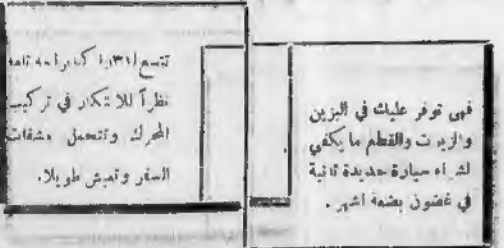 تتسع لـ٣١ راكبا براحة تامة
نظراً للابتكار في تركيب
المحرك وتتحمل مشقات
السفر وتعيش طويلا.
فهى توفر عليك في البزين
والزيت والقطع ما يكفي
لشراء سيارة جديدة ثانية
في غضون بضعة اشهر.